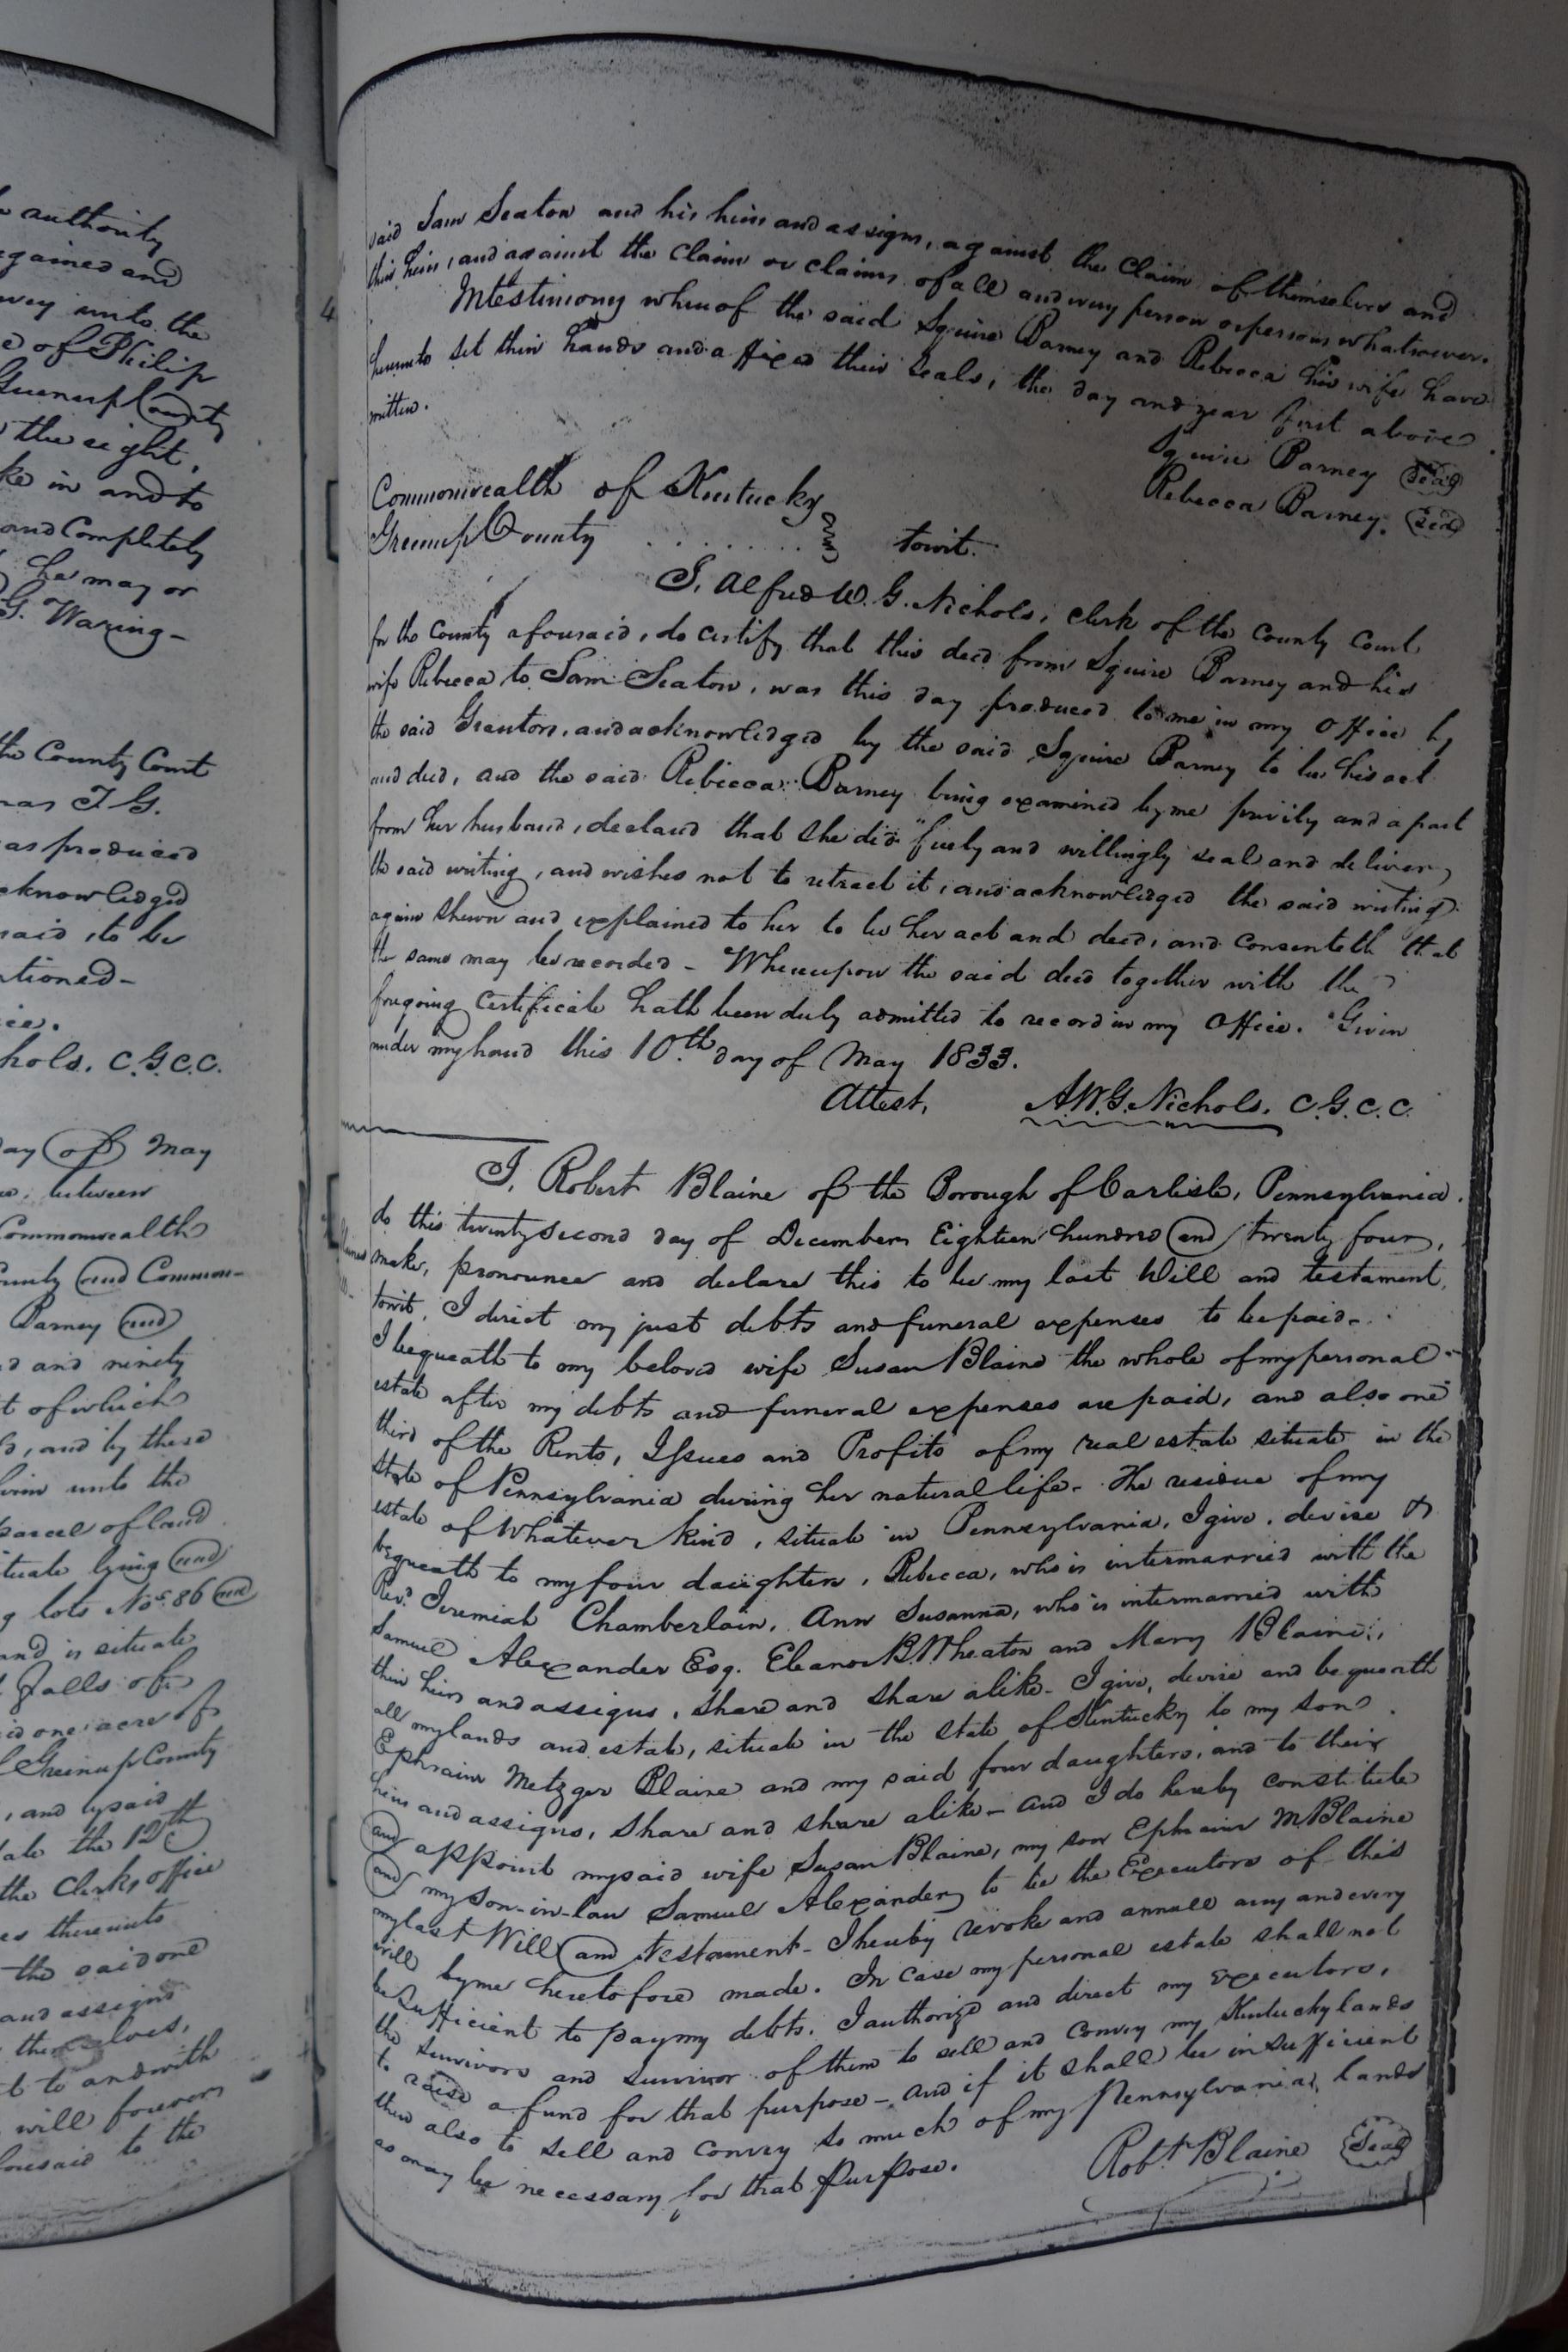 authority
gained and
vey unto the
d of Philip
Greenup County
the right,
ke in and to
and Completely
he may or
G. Waring-
the County Court
as T G.
as produced
cknowledged
said, to be
tioned-
ice.
hols. C.G.C.C.
ay of May
between
Commonwealth
ounty and Common-
Barney and
d and ninety
t of which
d, and by these
firm unto the
parcel of land
ituate lying and
g lots Nos. 86 and
and is situate
Falls of
id one acre of
Greenup County
, and by said
ate the 12th
the Clerks office
es thereunto
the said one
and assigns
themselves,
t to and with
will forever
foresaid to the
said Sam Seaton and his heirs and assigns, against the claim of themselves and
their heirs, and against the claim or claims of all and every person or persons whatsoever.
In testimony whereof the said Squire Barney and Rebecca his wife have
hereunto set their hands and affixed their seals, the day and year first above
written.
Squire Barney Seal
Rebecca Barney. Seal
Commonwealth of Kentucky
Greenup County ........ towit.
I, Alfred W. G. Nichols, clerk of the County Court
for the County aforesaid, do certify that this deed from Squire Barney and his
wife Rebecca to Sam Seaton, was this day produced to me in my Office by
the said Grantors, and acknowledged by the said Squire Barney to be his act
and deed, and the said Rebecca Barney being examined by me privily and apart
from her husband, declared that she did freely and willingly seal and deliver
the said writing, and wishes not to retract it, and acknowledged the said writing
again shewn and explained to her to be her act and deed, and consenteth that
the same may be recorded - Whereupon the said deed together with the
foregoing certificate hath been duly admitted to record in my Office. Given
under my hand this 10th day of May 1833.
Attest, A.W.G. Nichols. C.G.C.C.
I, Robert Blaine of the Borough of Carlisle, Pennsylvania.
do this twenty second day of December Eighteen hundred and twenty four,
make, pronounce and declare this to be my last Will and testament,
towit, I direct my just debts and funeral expenses to be paid-
I bequeath to my beloved wife Susan Blaine the whole of my personal
estate after my debts and funeral expenses are paid, and also one
third of the Rents, Issues and Profits of my real estate situate in the
State of Pennsylvania during her natural life- The residue of my
estate of Whatever kind, situate in Pennsylvania, I give, devise &
bequeath to my four daughters, Rebecca, who is intermarried with the
Revd. Jeremiah Chamberlain, Ann Susanna, who is intermarried with
Samuel Alexander Esq. Eleanor B. Wheaton and Mary Blaine,
their heirs and assigns, share and share alike- I give, devise and bequeath
all my lands and estate, situate in the state of Kentucky to my son
Ephraim Metzger Blaine and my said four daughters, and to their
heirs and assigns, share and share alike- and I do hereby constitute
and appoint my said wife Susan Blaine, my son Ephraim M Blaine
and my son-in-law Samuel Alexander, to be the Executors of this
my last Will and testament- I hereby revoke and annull any and every
will by me heretofore made. In case my personal estate shall not
be sufficient to pay my debts, I authorize and direct my executors,
the survivors and survivor of them to sell and convey my Kentucky lands
to raise a fund for that purpose- and if it shall be insufficient
then also to sell and convey so much of my Pennsylvania lands
as may be necessary for that purpose.
Robt. Blaine Seal